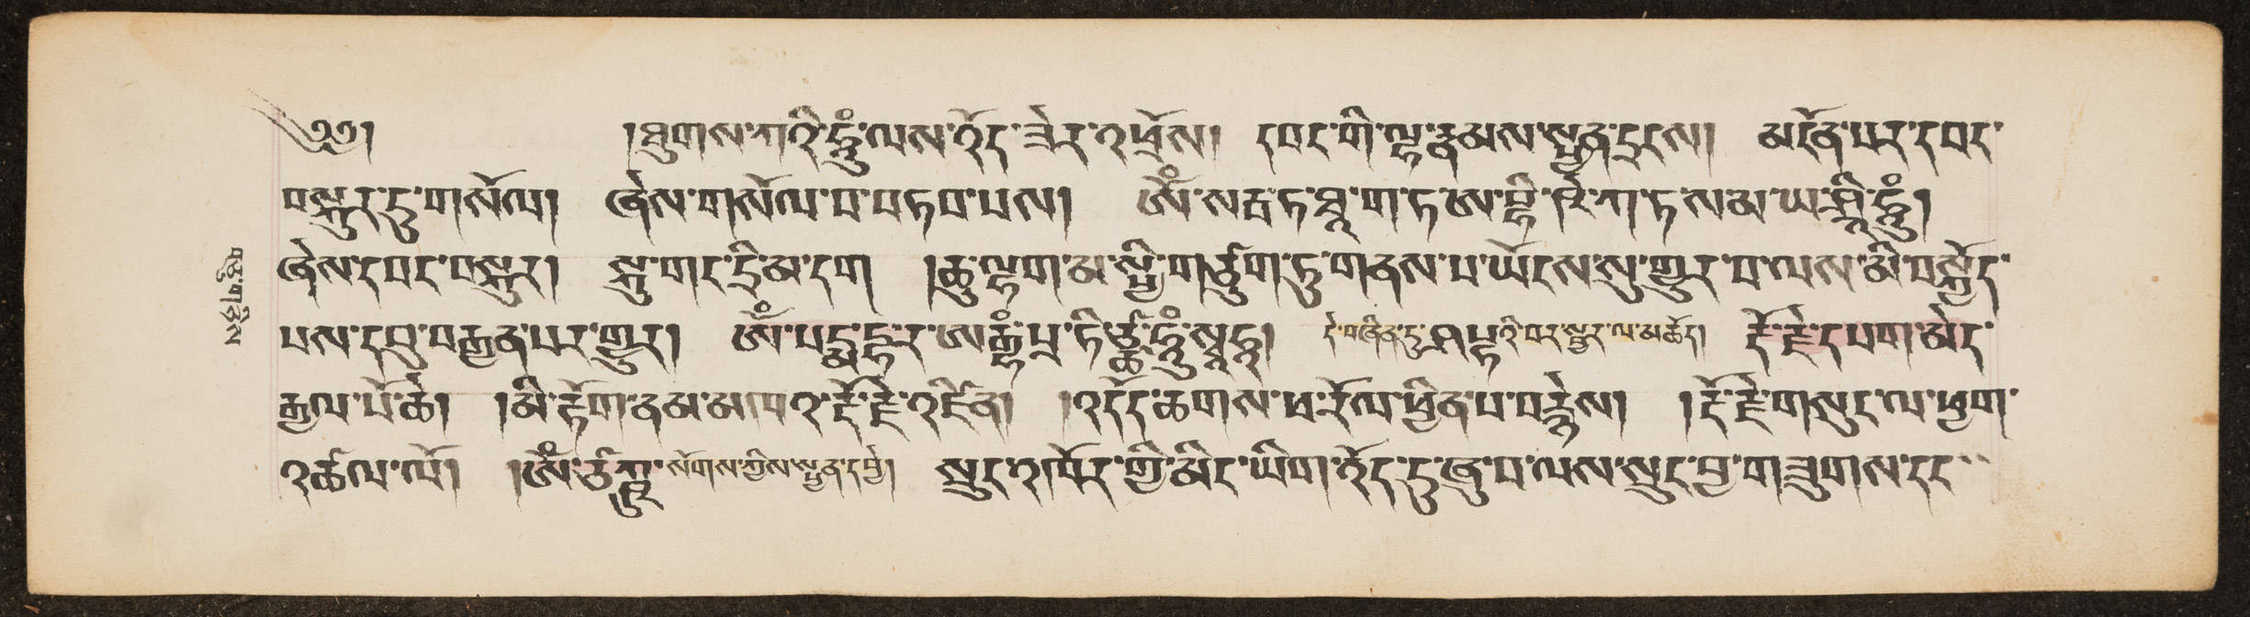 ༄༅། །ཐུགས་ཀའི་ཧཱུྃ་ལས་འོད་ཟེར་འཕྲོས། དབང་གི་ལྷ་རྣམས་སྤྱན་དྲངས། མངོན་པར་དབང་
བསྐུར་དུ་གསོལ། ཞེས་གསོལ་བ་བཏབ་པས། ཨོཾ་སརྦ་ཏ་ཐཱ་ག་ཏ་ཨ་བྷི་ཥེ་ཀ་ཏ་ས་མ་ཡ་ཤྲཱི་ཧཱུྃ།
ཞེས་དབང་བསྐུར། སྐུ་གང་དྲི་མ་དག །ཆུ་ལྷག་མ་སྤྱི་གཙུག་ཏུ་གནས་པ་ཡོངས་སུ་གྱུར་པ་ལས་མི་བསྐྱོད་
པས་དབུ་བརྒྱན་པར་གྱུར། ཨོཾ་བཛྲ་བྷཻ་ར་ཝ་ཨརྒྷཾ་པྲ་ཏཱིཙྪ་ཧཱུྃ་སྭཱ་ཧཱ། དེ་བཞིན་དུ་ཤཔྟའི་བར་སྦྱར་ལ་མཆོད། རྡོ་རྗེ་དཔག་མེད་
རྒྱལ་པོ་ཆེ། །མི་རྟོག་ནམ་མཁའ་རྡོ་རྗེ་འཛིན། །འདོད་ཆགས་ཕ་རོལ་ཕྱིན་པ་བརྙེས། །རྡོ་རྗེ་གསུང་ལ་ཕྱག་
འཚལ་ལོ། །ཨོཾ་ཙཀྵུ་སོགས་ཀྱིས་སྤྱན་དབྱེ། སྲུང་འཁོར་གྱི་མིང་ཡིག་འོད་དུ་ཞུ་བ་ལས་སྲུང་བྱ་གཟུགས་དང
བཅུ་གཅིག